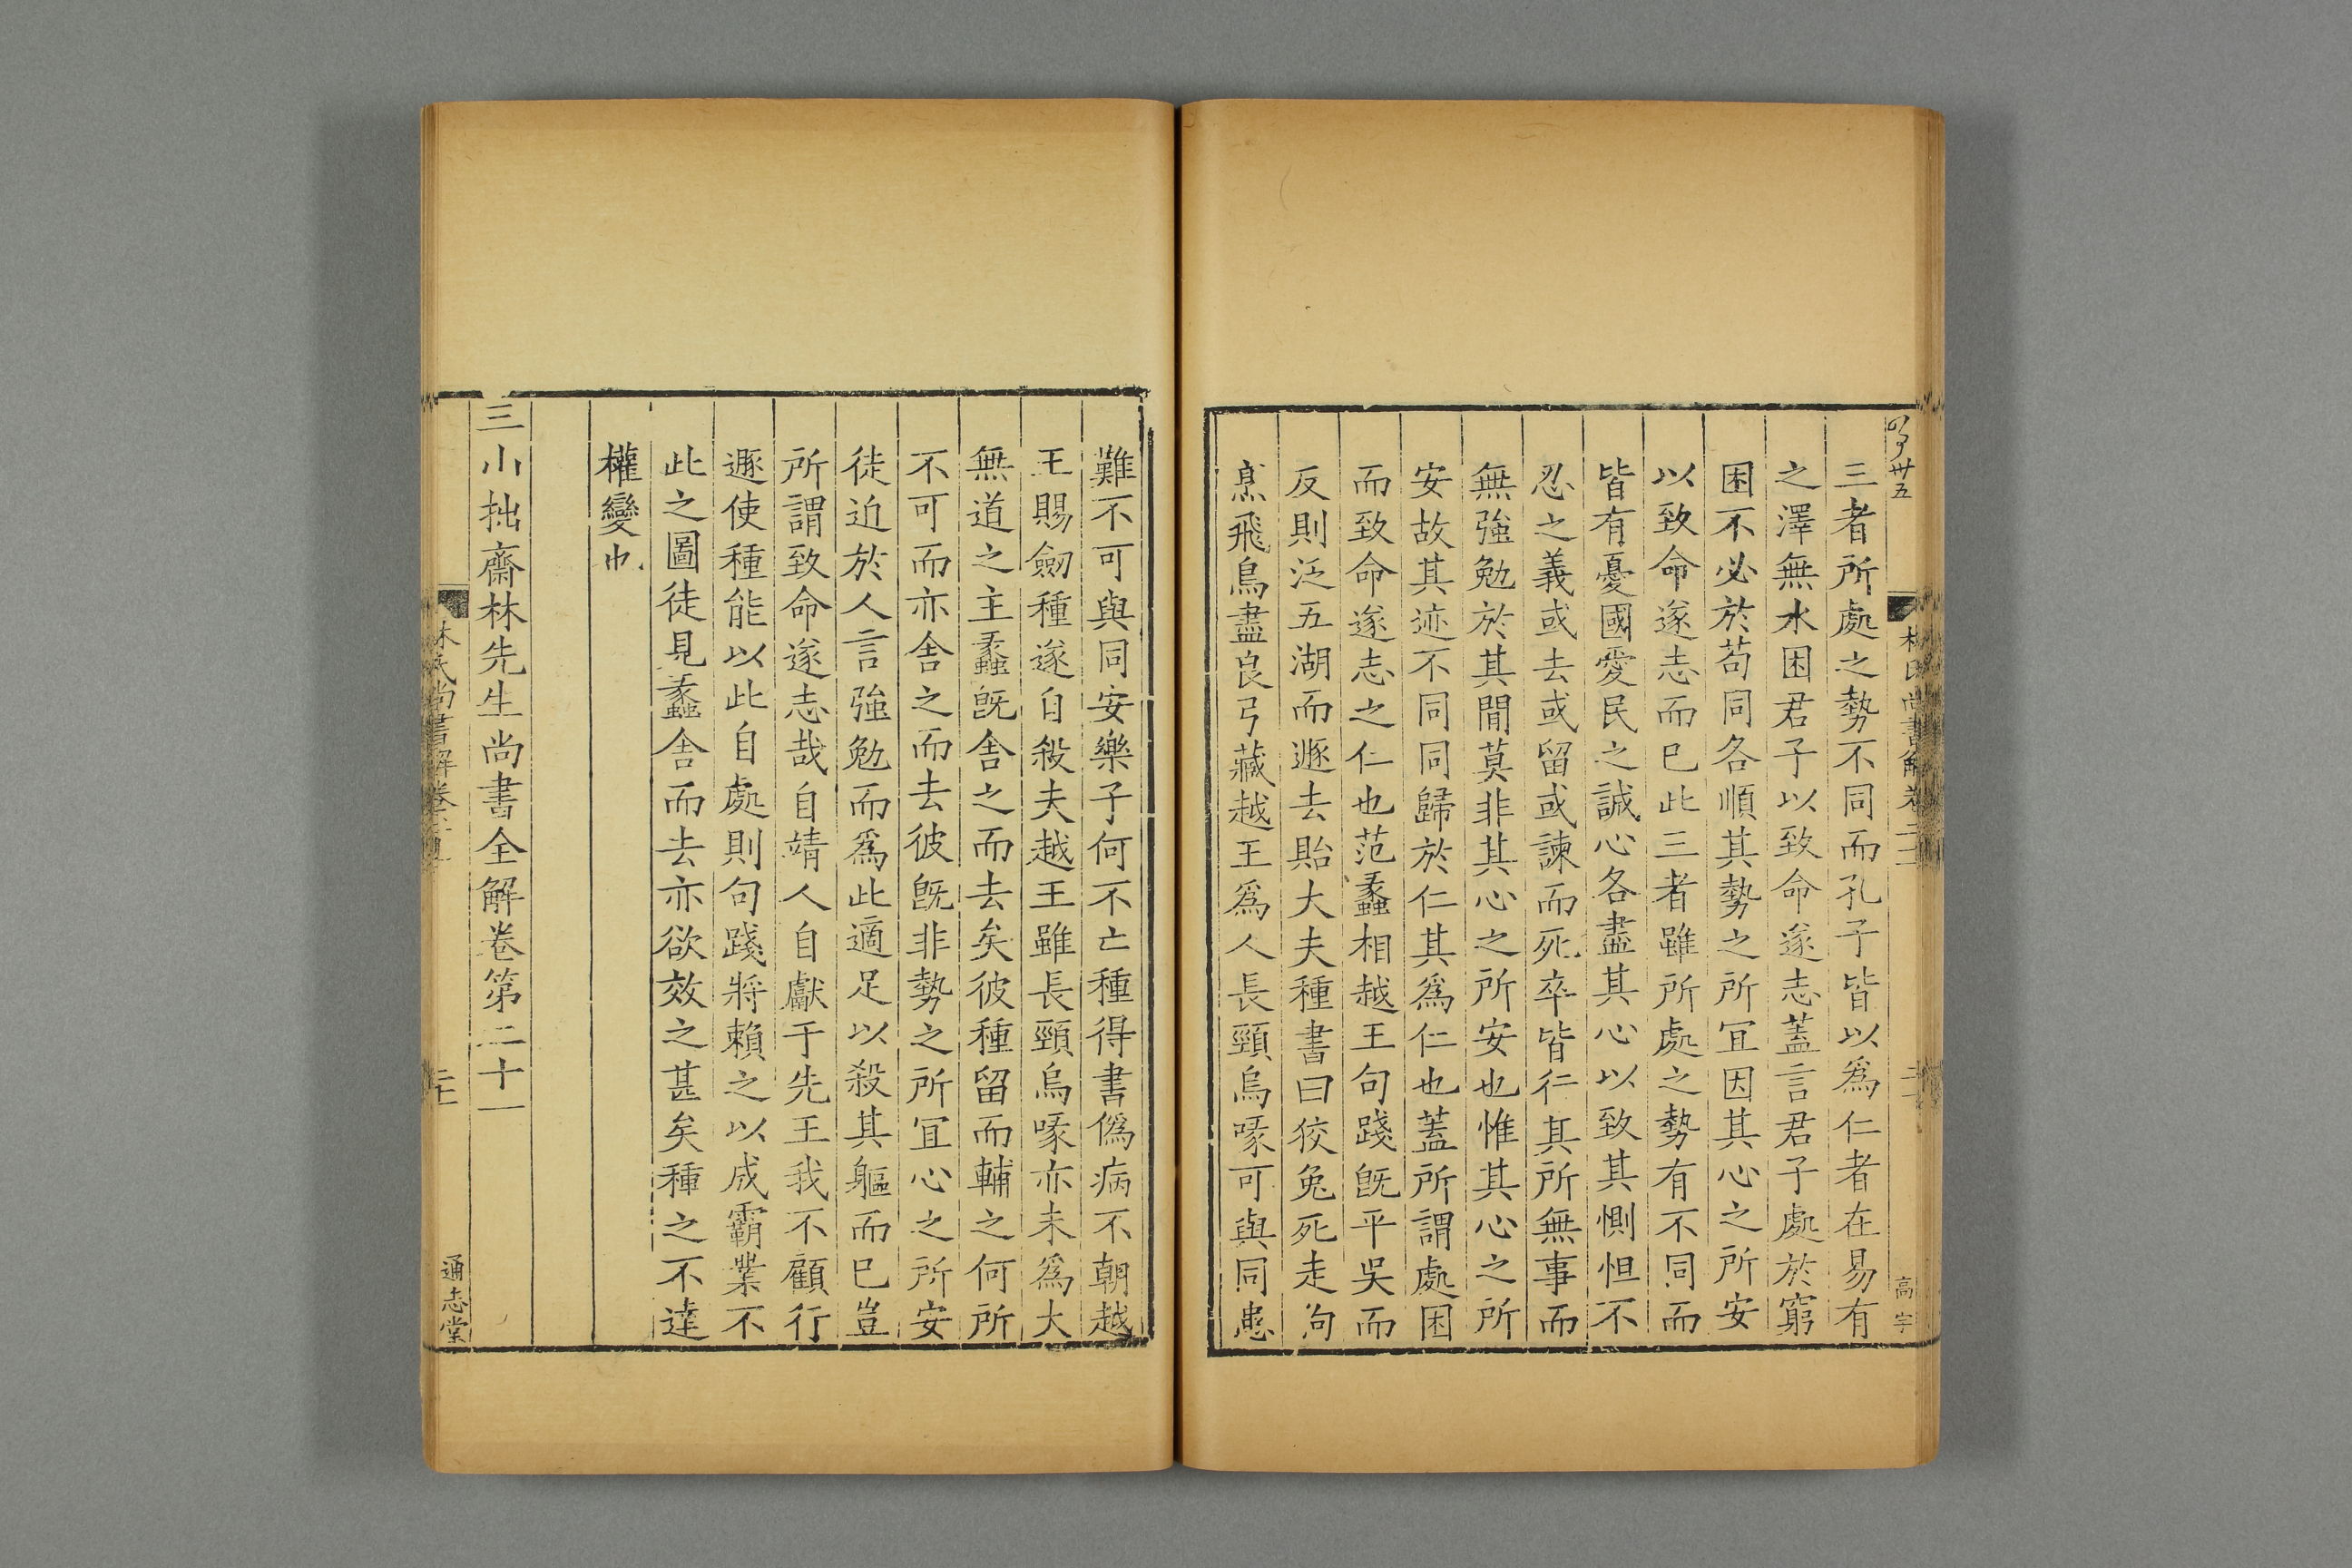 三者所處之勢不同而孔子皆以爲仁者在易有
之澤無水困君子以致命遂志蓋言君子處於窮
困不必於苟同各順其勢之所宜因其心之所安
以致命遂志而已此三者雖所處之勢有不同而
皆有憂國愛民之誠心各盡其心以致其惻怛不
忍之義或去或留或諫而死卒皆行其所無事而
無強勉於其閒莫非其心之所安也惟其心之所
安故其迹不同同歸於仁其爲仁也蓋所謂處困
而致命遂志之仁也范蠡相越王句踐旣平吳而
反則泛五湖而遯去貽大夫種書曰狡兔死走狗
烹飛鳥盡良弓藏越王爲人長頸烏喙可與同患
難不可與同安樂子何不亡種得書僞病不朝越
王賜劒種遂自殺夫越王雖長頸烏喙亦未爲大
無道之主蠡旣舍之而去矣彼種留而輔之何所
不可而亦舍之而去彼旣非勢之所宜心之所安
徒迫於人言強勉而爲此適足以殺其軀而已豈
所謂致命遂志哉自靖人自獻于先王我不顧行
遯使種能以此自處則句踐將賴之以成霸業不
此之圖徒見蠡舍而去亦欲效之甚矣種之不達
權變也
三山拙齋林先生尚書全解卷第二十一
林氏尚書解卷二十一
通志堂